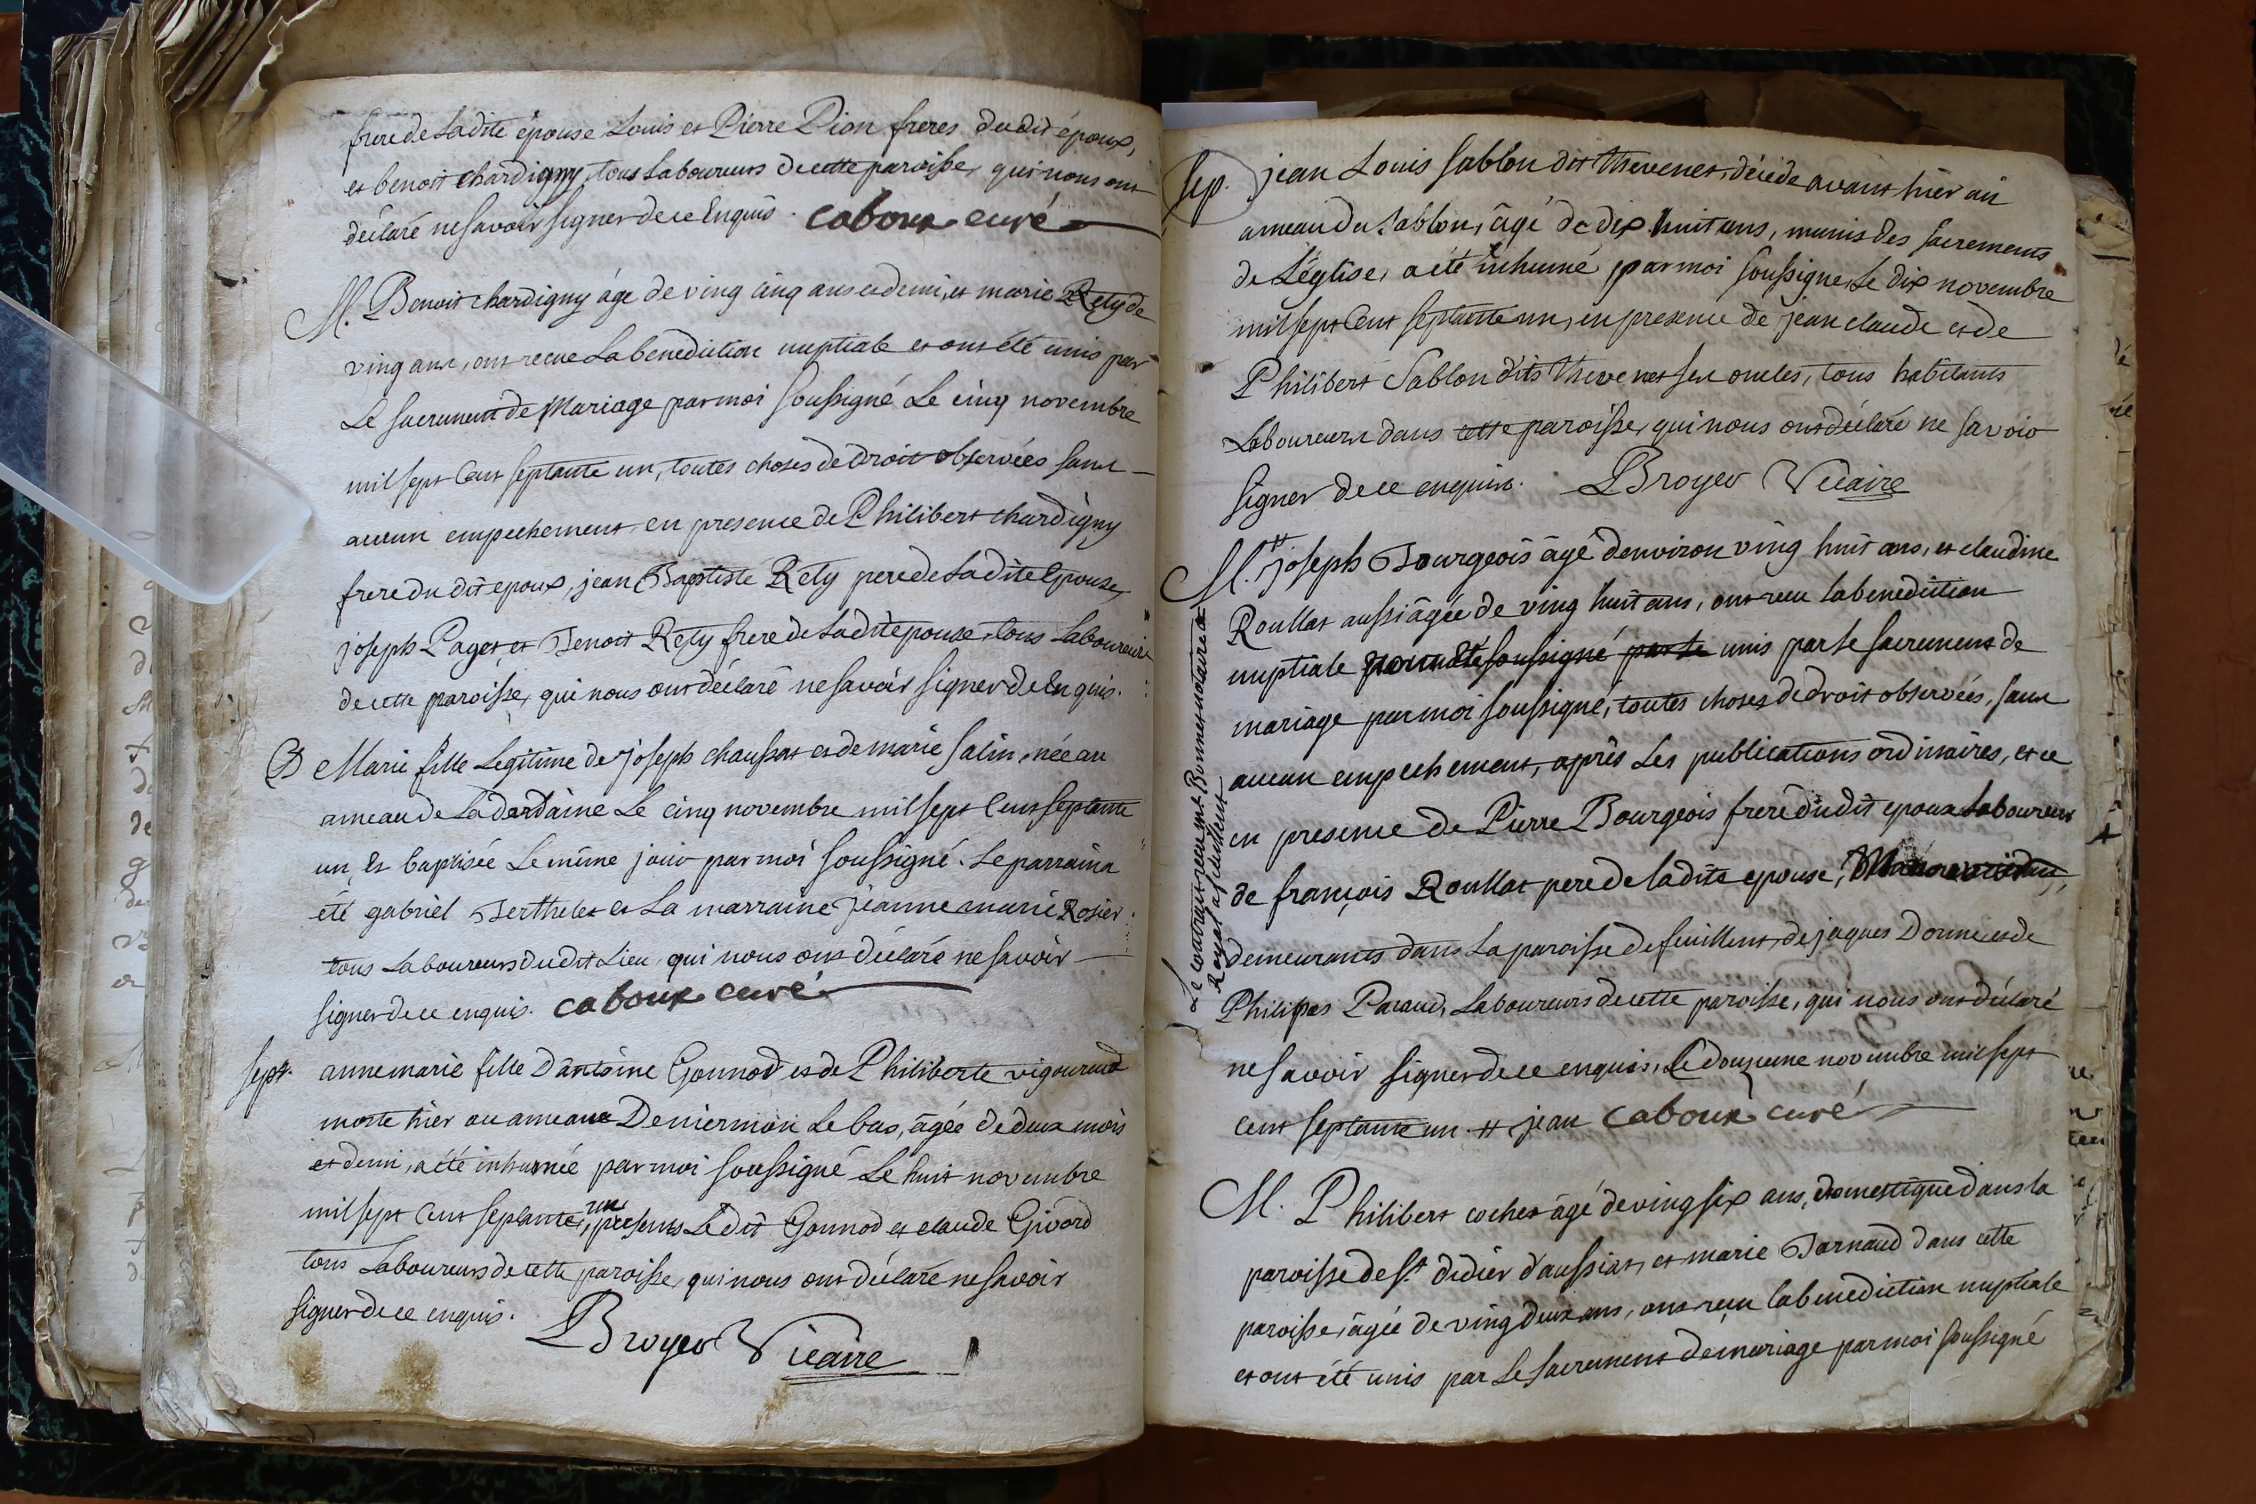 frere de Ladite épouse Louis et Pierre Pion freres du dit époux,
et benoit chardigny, tous Laboureurs de cette paroisse, qui nous ont
déclaré ne savoir signer de ce Enquis. caboux curé
M. Benoit chardigny âgé de ving cinq ans et demi, et marie Rety de
ving ans, ont recue La benediction nuptiale et ont été unis par
Le sacrement de Mariage par moi soussigné Le cinq novembre
mil sept Cent septante un, toutes choses de droit observées sans
aucun empechement en presence de Philibert chardigny
frere du dit epoux, jean Baptiste Rety pere de Ladite Epouse,
joseph Paget et Benoit Rety frere de Ladite epouse tous Laboureurs
de cette paroisse, qui nous ont déclaré ne savoir signer de Enquis.
B Marie fille Legitime de joseph chaussat et de marie salin, née au
ameau de La dardaine Le cinq novembre mil sept Cent septante
un, et baptisée Le même jour par moi soussigné. Le parrain a
été gabriel Berthelet et La marraine jeanne marie Rosier
tous Laboureurs dudit Lieu qui nous ont déclaré ne savoir
signer de ce enquis. caboux curé
sept. anne marie fille D'antoine Gonnod et de Philiberte vigouroud
morte hier au ameau De niermoin Le bas, âgée de deux mois
et demi, a été inhumée par moi soussigné Le huit novembre
mil sept Cent septante un, presents Le dit Gonnod et claude Givord
tous Laboureurs de cette paroisse, qui nous ont déclaré ne savoir
signer de ce enquis. Broyer Vicaire
sep. jean Louis sablon dit thevenet, décédé avant hier au
ameau du sablon, âgé de dix huit ans, munis des sacrements
de L'église, a été inhumé par moi soussigné, Le dix novembre
mil sept Cent septante un, en presence de jean claude et de
Philibert Sablon dits thevenet ses oncles, tous habitants
Laboureurs dans cette paroisse, qui nous ont déclaré ne savoir
signer de ce enquis. Broyer Vicaire
M. # joseph Bourgeois âgé denviron ving huit ans, et claudine
Roullat aussi âgée de ving huit ans, ont recu la benediction
nuptiale soussigné par le unis par le sacrement de
mariage par moi soussigné, toutes choses de droit observées, sans
aucun empechement, après Les publications ordinaires, et ce
en presence de Pierre Bourgeois frere du dit epoux Laboureur
de françois Roullat pere de ladite epouse,
demeurants dans La paroisse de feuillent, de jaques Donne et de
Philipes Pacaud, Laboureurs de cette paroisse, qui nous ont déclaré
ne savoir signer de ce enquis, Le douzieme novembre mil sept
cent septante un # jean caboux curé
Le contrat recu par Bonnet notaire
Royal a feuillent
M. Philibert cochet âgé de ving six ans, domestique dans la
paroisse de St didier d'aussiat, et marie Barnaud dans cette
paroisse, âgée de ving deux ans, ont reçu la benediction nuptiale
et ont été unis par Le sacrement de mariage par moi soussigné